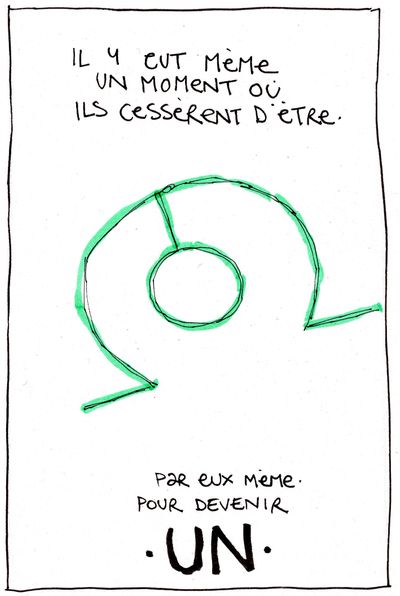 IL Y EUT MÊME
UN MOMENT OÙ
ILS CESSÈRENT D'ÊTRE.
PAR EUX MÊME.
POUR DEVENIR
.UN.